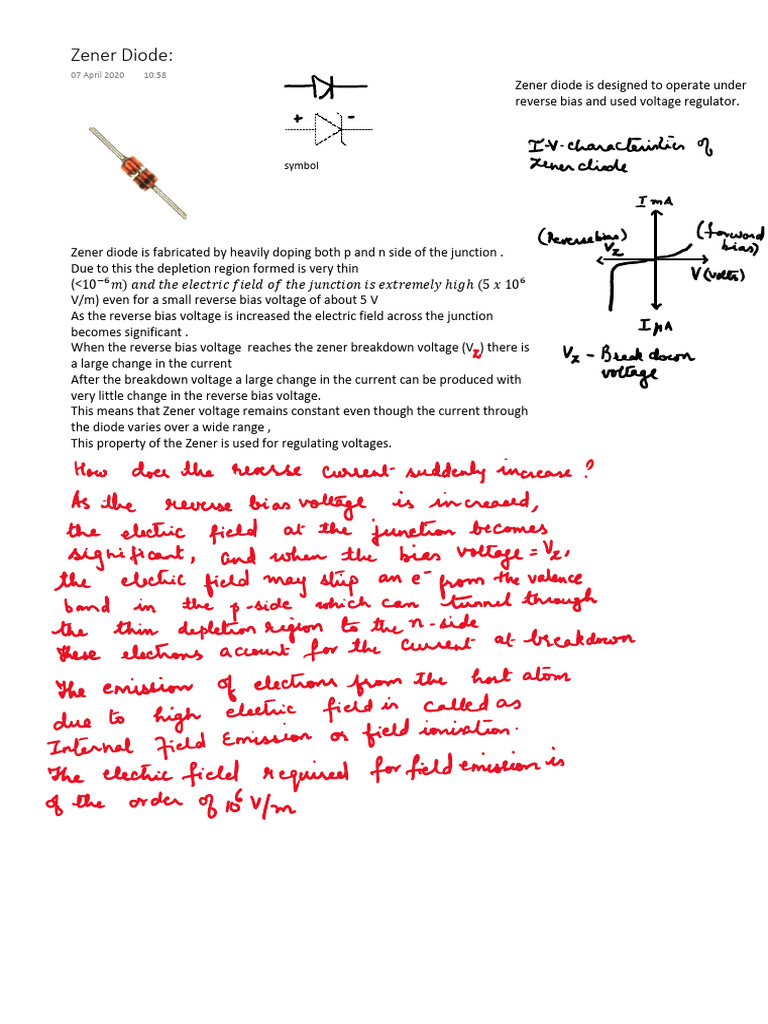 Zener Diode:
07 April 2020 10:58
Zener diode is designed to operate under
reverse bias and used voltage regulator.
+ -
symbol
I-V-characteristics of
Zener diode
I mA
(Reverse bias)
Vz
(forward
bias)
V(volts)
I μA
Vz - Break down
voltage
Zener diode is fabricated by heavily doping both p and n side of the junction .
Due to this the depletion region formed is very thin
(<10⁻⁶m) and the electric field of the junction is extremely high (5 x 10⁶
V/m) even for a small reverse bias voltage of about 5 V
As the reverse bias voltage is increased the electric field across the junction
becomes significant .
When the reverse bias voltage reaches the zener breakdown voltage (Vz) there is
a large change in the current
After the breakdown voltage a large change in the current can be produced with
very little change in the reverse bias voltage.
This means that Zener voltage remains constant even though the current through
the diode varies over a wide range ,
This property of the Zener is used for regulating voltages.
How does the reverse current suddenly increase?
As the reverse bias voltage is increased,
the electric field at the junction becomes
significant, and when the bias voltage = Vz,
the electric field may strip an e⁻ from the valence
band in the p-side which can tunnel through
the thin depletion region to the n-side
These electrons account for the current at breakdown
The emission of electrons from the host atom
due to high electric field is called as
Internal Field Emission or field ionisation.
The electric field required for field emission is
of the order of 10⁶ V/m